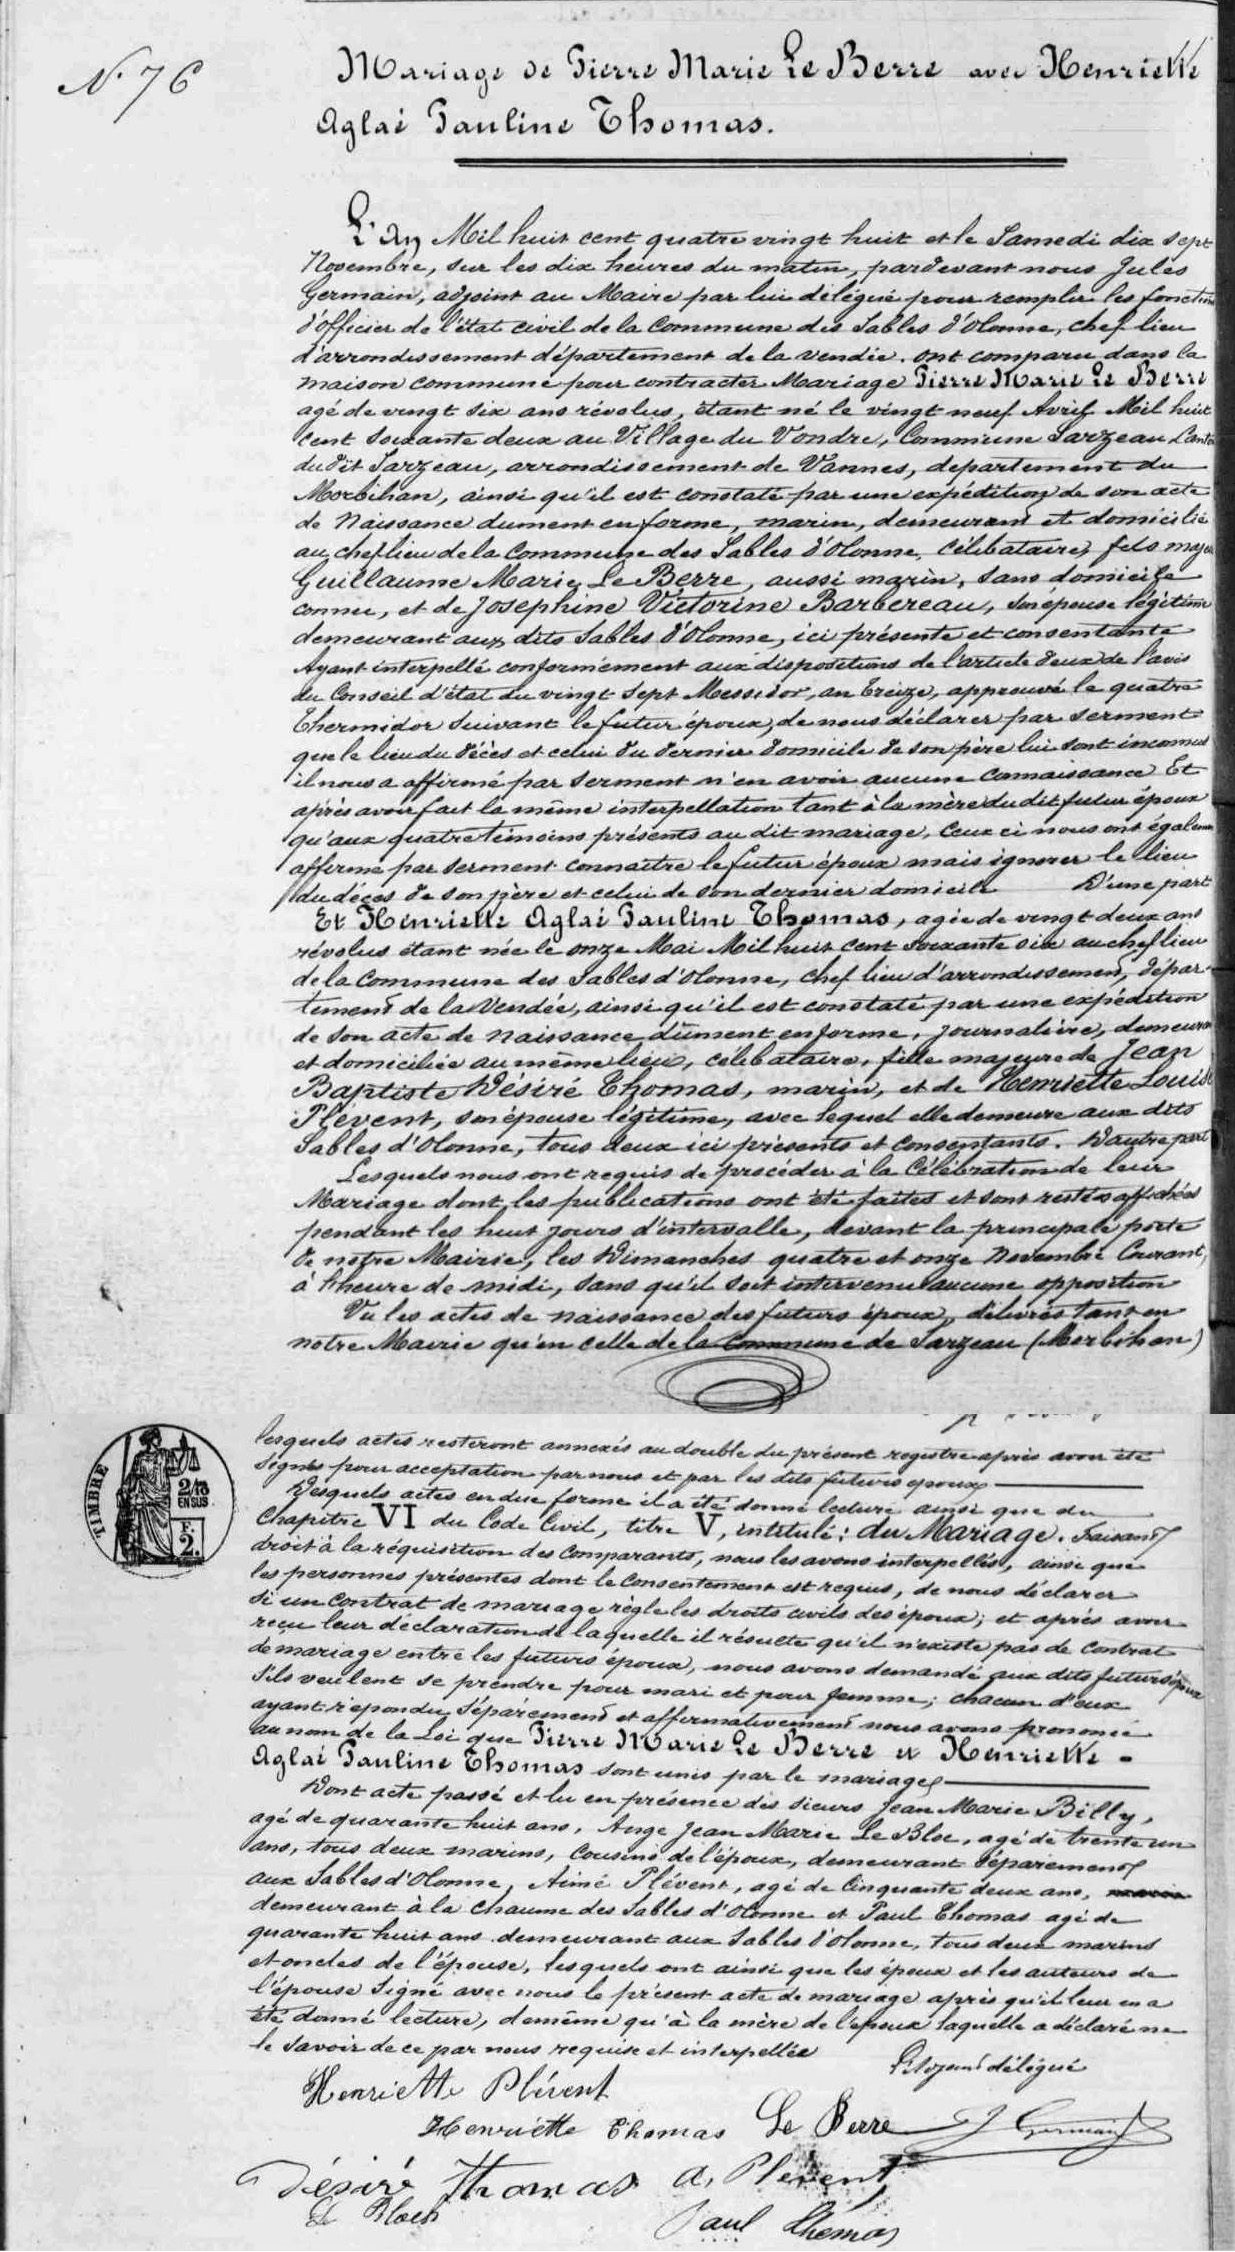 N. 76
Mariage de Pierre Marie Le Berre avec Henriette
Aglaé Pauline Thomas.
L'An Mil huit cent quatre vingt huit et le Samedi dix sept
Novembre, sur les dix heures du matin, pardevant nous Jules
Germain, adjoint au Maire par lui délégué pour remplir les fonctions
d'officier de l'état civil de la Commune des Sables d'Olonne, chef lieu
d'arrondissement département de la Vendée. ont comparu dans la
maison commune pour contracter Mariage Pierre Marie Le Berre
agé de vingt six ans révolus, étant né le vingt neuf Avril Mil huit
cent soixante deux au Village du Vondre, Commune Sarzeau Canton
dudit Sarzeau, arrondissement de Vannes, département du
Morbihan, ainsi qu'il est constaté par une expédition de son acte
de Naissance dument en forme, marin, demeurant et domicilié
au chef lieu de la Commune des Sables d'Olonne, célibataire, fils majeur
Guillaume Marie Le Berre, aussi marin, sans domicile
connu, et de Josephine Victorine Barbereau, son épouse légitime
demeurant aux dits Sables d'Olonne, ici présente et consentante
Ayant interpellé conformément aux dispositions de l'article deux de l'avis
du Conseil d'état du vingt sept Messidor, an treize, approuvé le quatre
Thermidor suivant le futur époux, de nous déclarer par serment
que le lieu du décès et celui du dernier domicile de son père lui sont inconnus
il nous a affirmé par serment n'en avoir aucune connaissance Et
après avoir fait la même interpellation tant à la mère dudit futur époux
qu'aux quatre témoins présents au dit mariage, ceux ci nous ont également
affirmé par serment connaitre le futur époux mais ignorer le lieu
du décès de son père et celui de son dernier domicile D'une part
Et Henriette Aglaé Pauline Thomas, agée de vingt deux ans
révolus étant née le onze Mai Mil huit cent soixante six au chef lieu
de la Commune des Sables d'Olonne, chef lieu d'arrondissement, dépar-
tement de la Vendée, ainsi qu'il est constaté par une expédition
de son acte de naissance dûment en forme, journalière, demeurant
et domiciliée au même lieu, célibataire, fille majeure de Jean
Baptiste Désiré Thomas, marin, et de Henriette Louise
Plévent, son épouse légitime, avec lequel elle demeure aux dits
Sables d'Olonne, tous deux ici présents et consentants. D'autre part
Lesquels nous ont requis de procéder à la Célébration de leur
Mariage dont les publications ont été faites et sont restées affichées
pendant les huit jours d'intervalle, devant la principale porte
de notre Mairie, les Dimanches quatre et onze Novembre Courant,
à l'heure de midi, sans qu'il soit intervenu aucune opposition
Vu les actes de naissance des futurs époux, délivrés tant en
notre Mairie qu'en celle de la Commune de Sarzeau (Morbihan)
TIMBRE
2/10
EN SUS
F.
2.
lesquels actes resteront annexés au double du présent registre après avoir été
signés pour acceptation par nous et par les dits futurs époux
Desquels actes en due forme il a été donné lecture ainsi que du
Chapitre VI du Code Civil, titre V, intitulé : du Mariage. Faisant
droit à la réquisition des Comparants, nous les avons interpellés, ainsi que
les personnes présentes dont le consentement est requis, de nous déclarer
si un contrat de mariage règle les droits civils des époux ; et après avoir
reçu leur déclaration de laquelle il résulte qu'il n'existe pas de contrat
de mariage entre les futurs époux, nous avons demandé aux dits futurs époux
s'ils veulent se prendre pour mari et pour femme ; chacun d'eux
ayant répondu séparement et affirmativement nous avons prononcé
au nom de la Loi que Pierre Marie Le Berre et Henriette -
Aglaé Pauline Thomas sont unis par le mariage
Dont acte passé et lu en présence des sieurs Jean Marie Billy,
agé de quarante huit ans, Ange Jean Marie Le Bloc, agé de trente un
ans, tous deux marins, cousins de l'époux, demeurant séparement
aux Sables d'Olonne, Aimé Plévent, agé de Cinquante deux ans, marin
demeurant à la Chaume des Sables d'Olonne et Paul Thomas agé de
quarante huit ans demeurant aux Sables d'Olonne, tous deux marins
et oncles de l'épouse, lesquels ont ainsi que les époux et les auteurs de
l'épouse signé avec nous le présent acte de mariage après qu'il leur en a
été donné lecture, de même qu'à la mère de l'époux laquelle a déclaré ne
le savoir de ce par nous requise et interpellée
délégué
Henriette Plévent
Henriette Thomas Le Berre J Germain
Désiré Thomas A. Plévent
Le Bloch
Paul Thomas